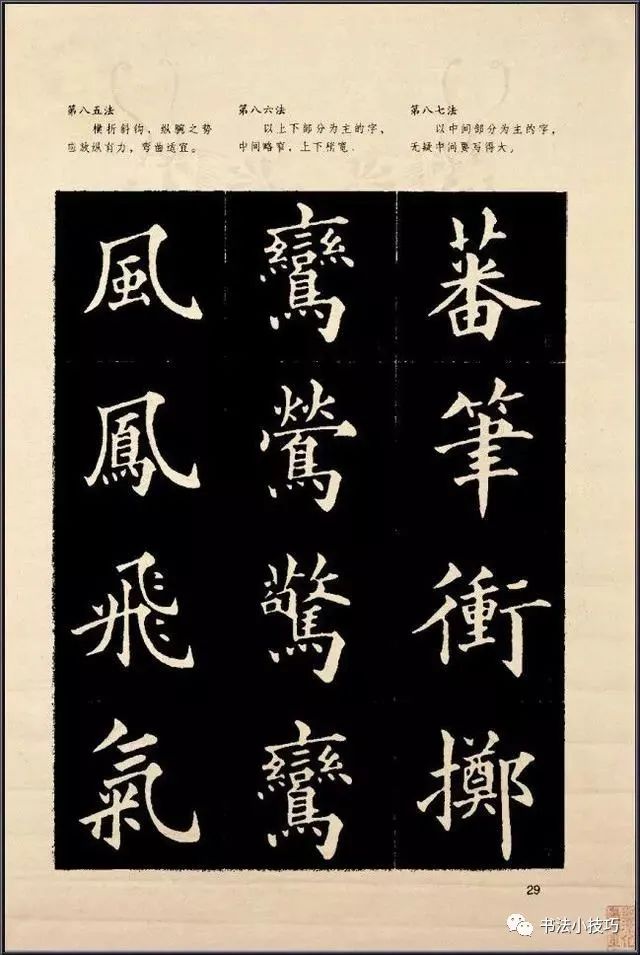 第八五法
横折斜钩，纵腕之势
应放纵有力，弯曲适宜。
第八六法
以上下部分为主的字，
中间略窄，上下稍宽。
第八七法
以中间部分为主的字，
无疑中间要写得大。
風 鸞 蕃
鳳 鶯 筆
飛 驚 衝
氣 鸞 擲
29
书法小技巧